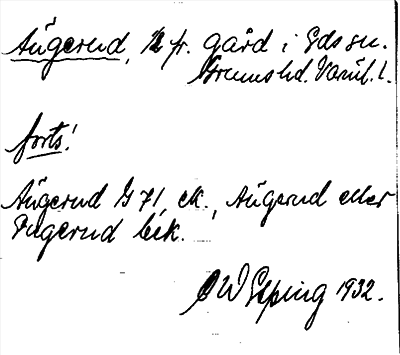 Äugerud, 1/2 fr. gård i Eds sn.
Grums hd. Värml. l.
forts!
Äugerud G 71, ek., Äugerud eller
Eugerud bek.
OW Epping 1932.